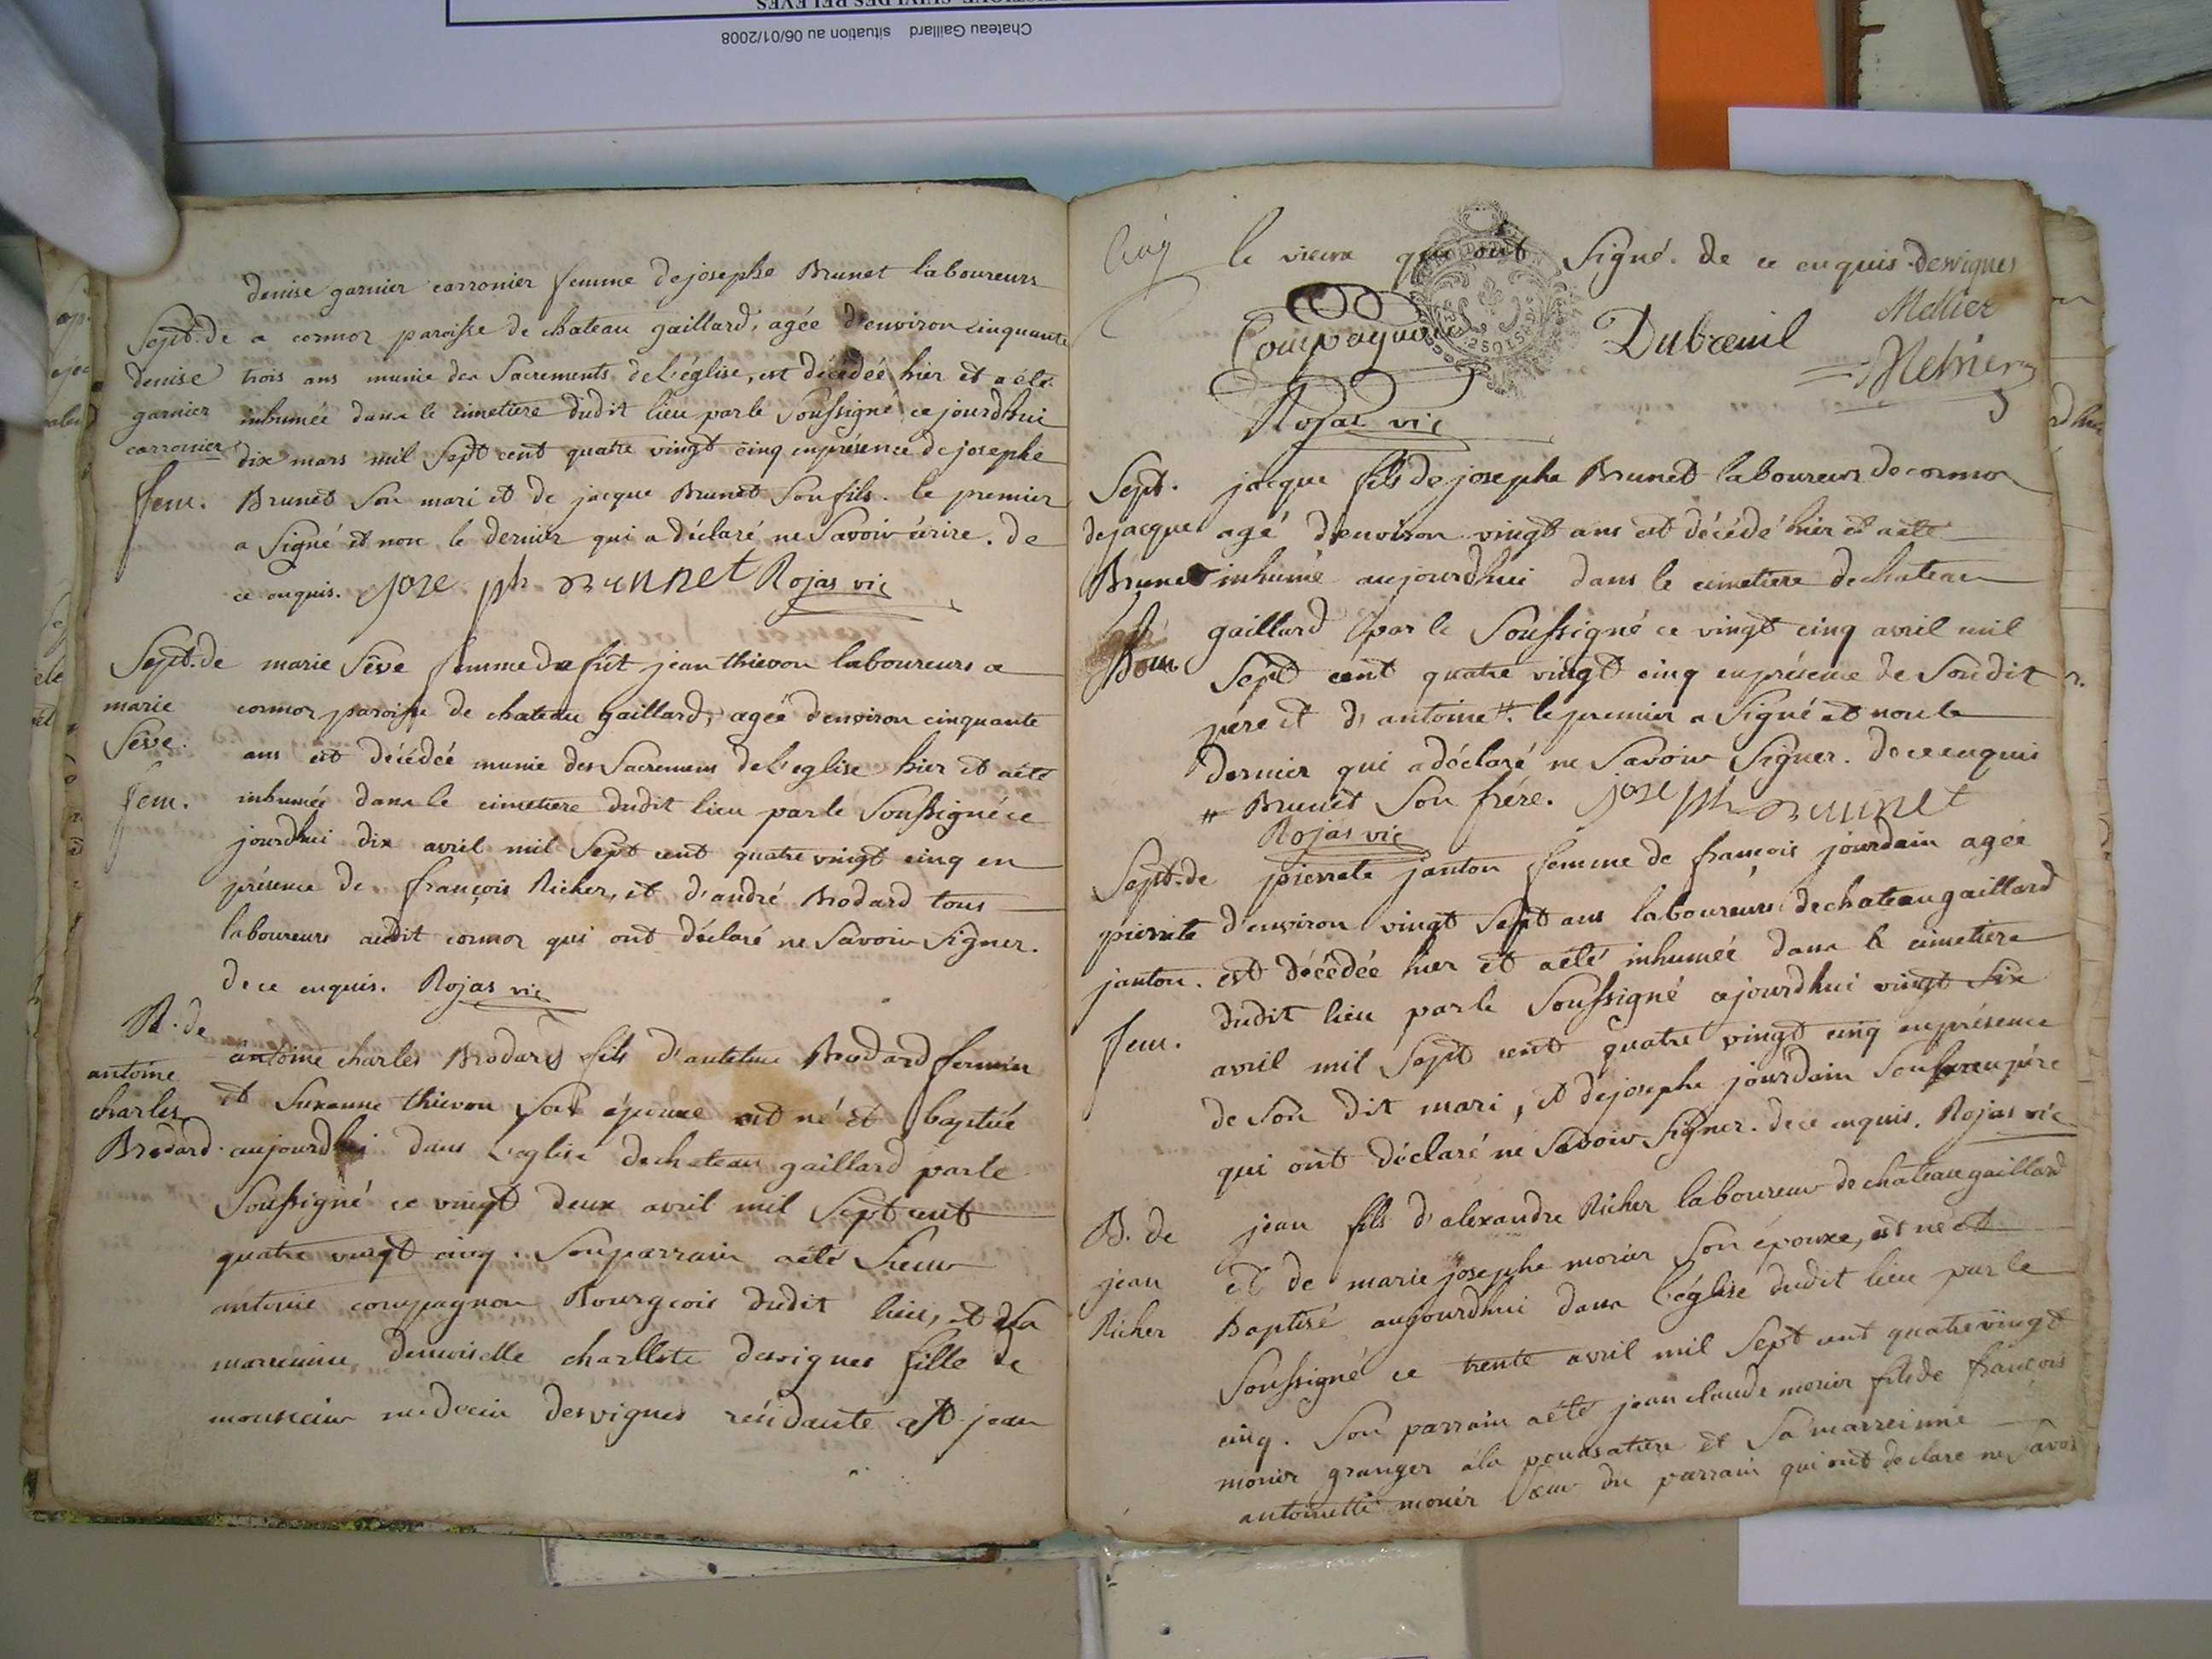 Chateau Gaillard situation au 06/01/2008
SUIVI DES RELEVES
denise garnier carronier femme de josephe Brunet laboureurs
Sept. de
denise
garnier
carronier
fem.
a cormoz paroisse de chateau gaillard, agée d'environ cinquante
trois ans munie des Sacrements de l'église, est décédée hier et a été
inhumée dans le cimetiere dudit lieu par le Soussigné ce jourdhui
dix mars mil Sept cent quatre vingt cinq en présence de josephe
Brunet Son mari et de jacque Brunet Son fils. le premier
a Signé et non le dernier qui a déclaré ne Savoir écrire. de
ce enquis. joseph brunnet Rojas vic
Sept. de
marie
Sêve.
fem.
marie Sêve femme de fut jean thievon laboureurs a
cormoz paroisse de chateau gaillard, agée d'environ cinquante
ans est décédée munie des Sacremens de l'eglise hier et a été
inhumée dans le cimetiere dudit lieu par le Soussigné ce
jourdhui dix avril mil Sept cent quatre vingt cinq en
présence de françois Richer, et d'andré Brodard tous
laboureurs audit cormoz qui ont déclaré ne Savoir Signer.
de ce enquis. Rojas vic
B. de
antoine
charles
Brodard.
antoine charles Brodard fils d'antelme Brodard fermier
et Suzanne thievon Son épouse est né et baptisé
aujourdhui dans l'eglise de chateau gaillard par le
Soussigné ce vingt deux avril mil Sept cent
quatre vingt cinq. Son parrain a été Sieur
antoine compagnon Bourgeois dudit lieu, et Sa
marreinne demoiselle charllote desvignes fille de
monsieur medecin desvignes résidante a St jean
Cinq
le vieux qui ont Signé. de ce enquis. desvignes
Compagnon Dubreuil Metier
Metrier
Rojas vic
Sept.
de jacque
Brunet
jacque fils de josephe Brunet laboureur de cormoz
agé d'environ vingt ans est décédé hier et a été
inhumé aujourdhui dans le cimetiere de chateau
gaillard par le Soussigné ce vingt cinq avril mil
Sept cent quatre vingt cinq en présence de Son dit
pére et d'antoine #. le premier a Signé et non le
dernier qui a déclaré ne Savoir Signer. de ce enquis
# Brunet Son frére. joseph brunnet
Rojas vic
Sept. de
pierrete
janton.
fem.
pierrete janton femme de françois jourdain agée
d'environ vingt Sept ans laboureurs de chateau gaillard
est décédée hier et a été inhumée dans le cimetiere
dudit lieu par le Soussigné cejourdhui vingt Six
avril mil Sept cent quatre vingt cinq en présence
de Son dit mari, et de josephe jourdain Son beaupére
qui ont déclaré ne Savoir Signer. de ce enquis. Rojas vic
B. de
jean
Richer
jean fils d'alexandre Richer laboureur de chateau gaillard
et de marie josephe morier Son épouse, est né et
Baptisé aujourdhui dans l'église dudit lieu par le
Soussigné ce trente avril mil Sept cent quatre vingt
cinq. Son parrain a été jean claude morier fils de françois
morier granger a la poussatiere et Sa marreinne
antoinette morier Sœur du parrain qui ont déclaré ne Savoir